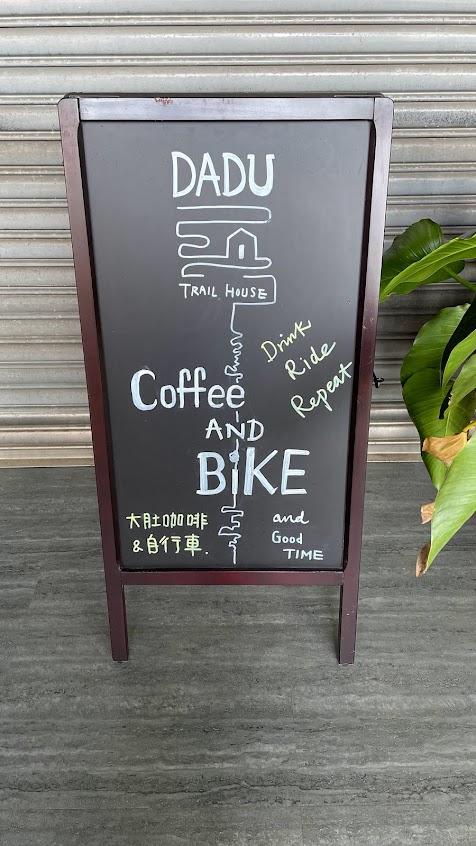 DADU
TRAIL HOUSE
Drink
Ride
Repeat
Coffee
AND
BiKE
大肚咖啡
&自行車.
and
Good
TIME